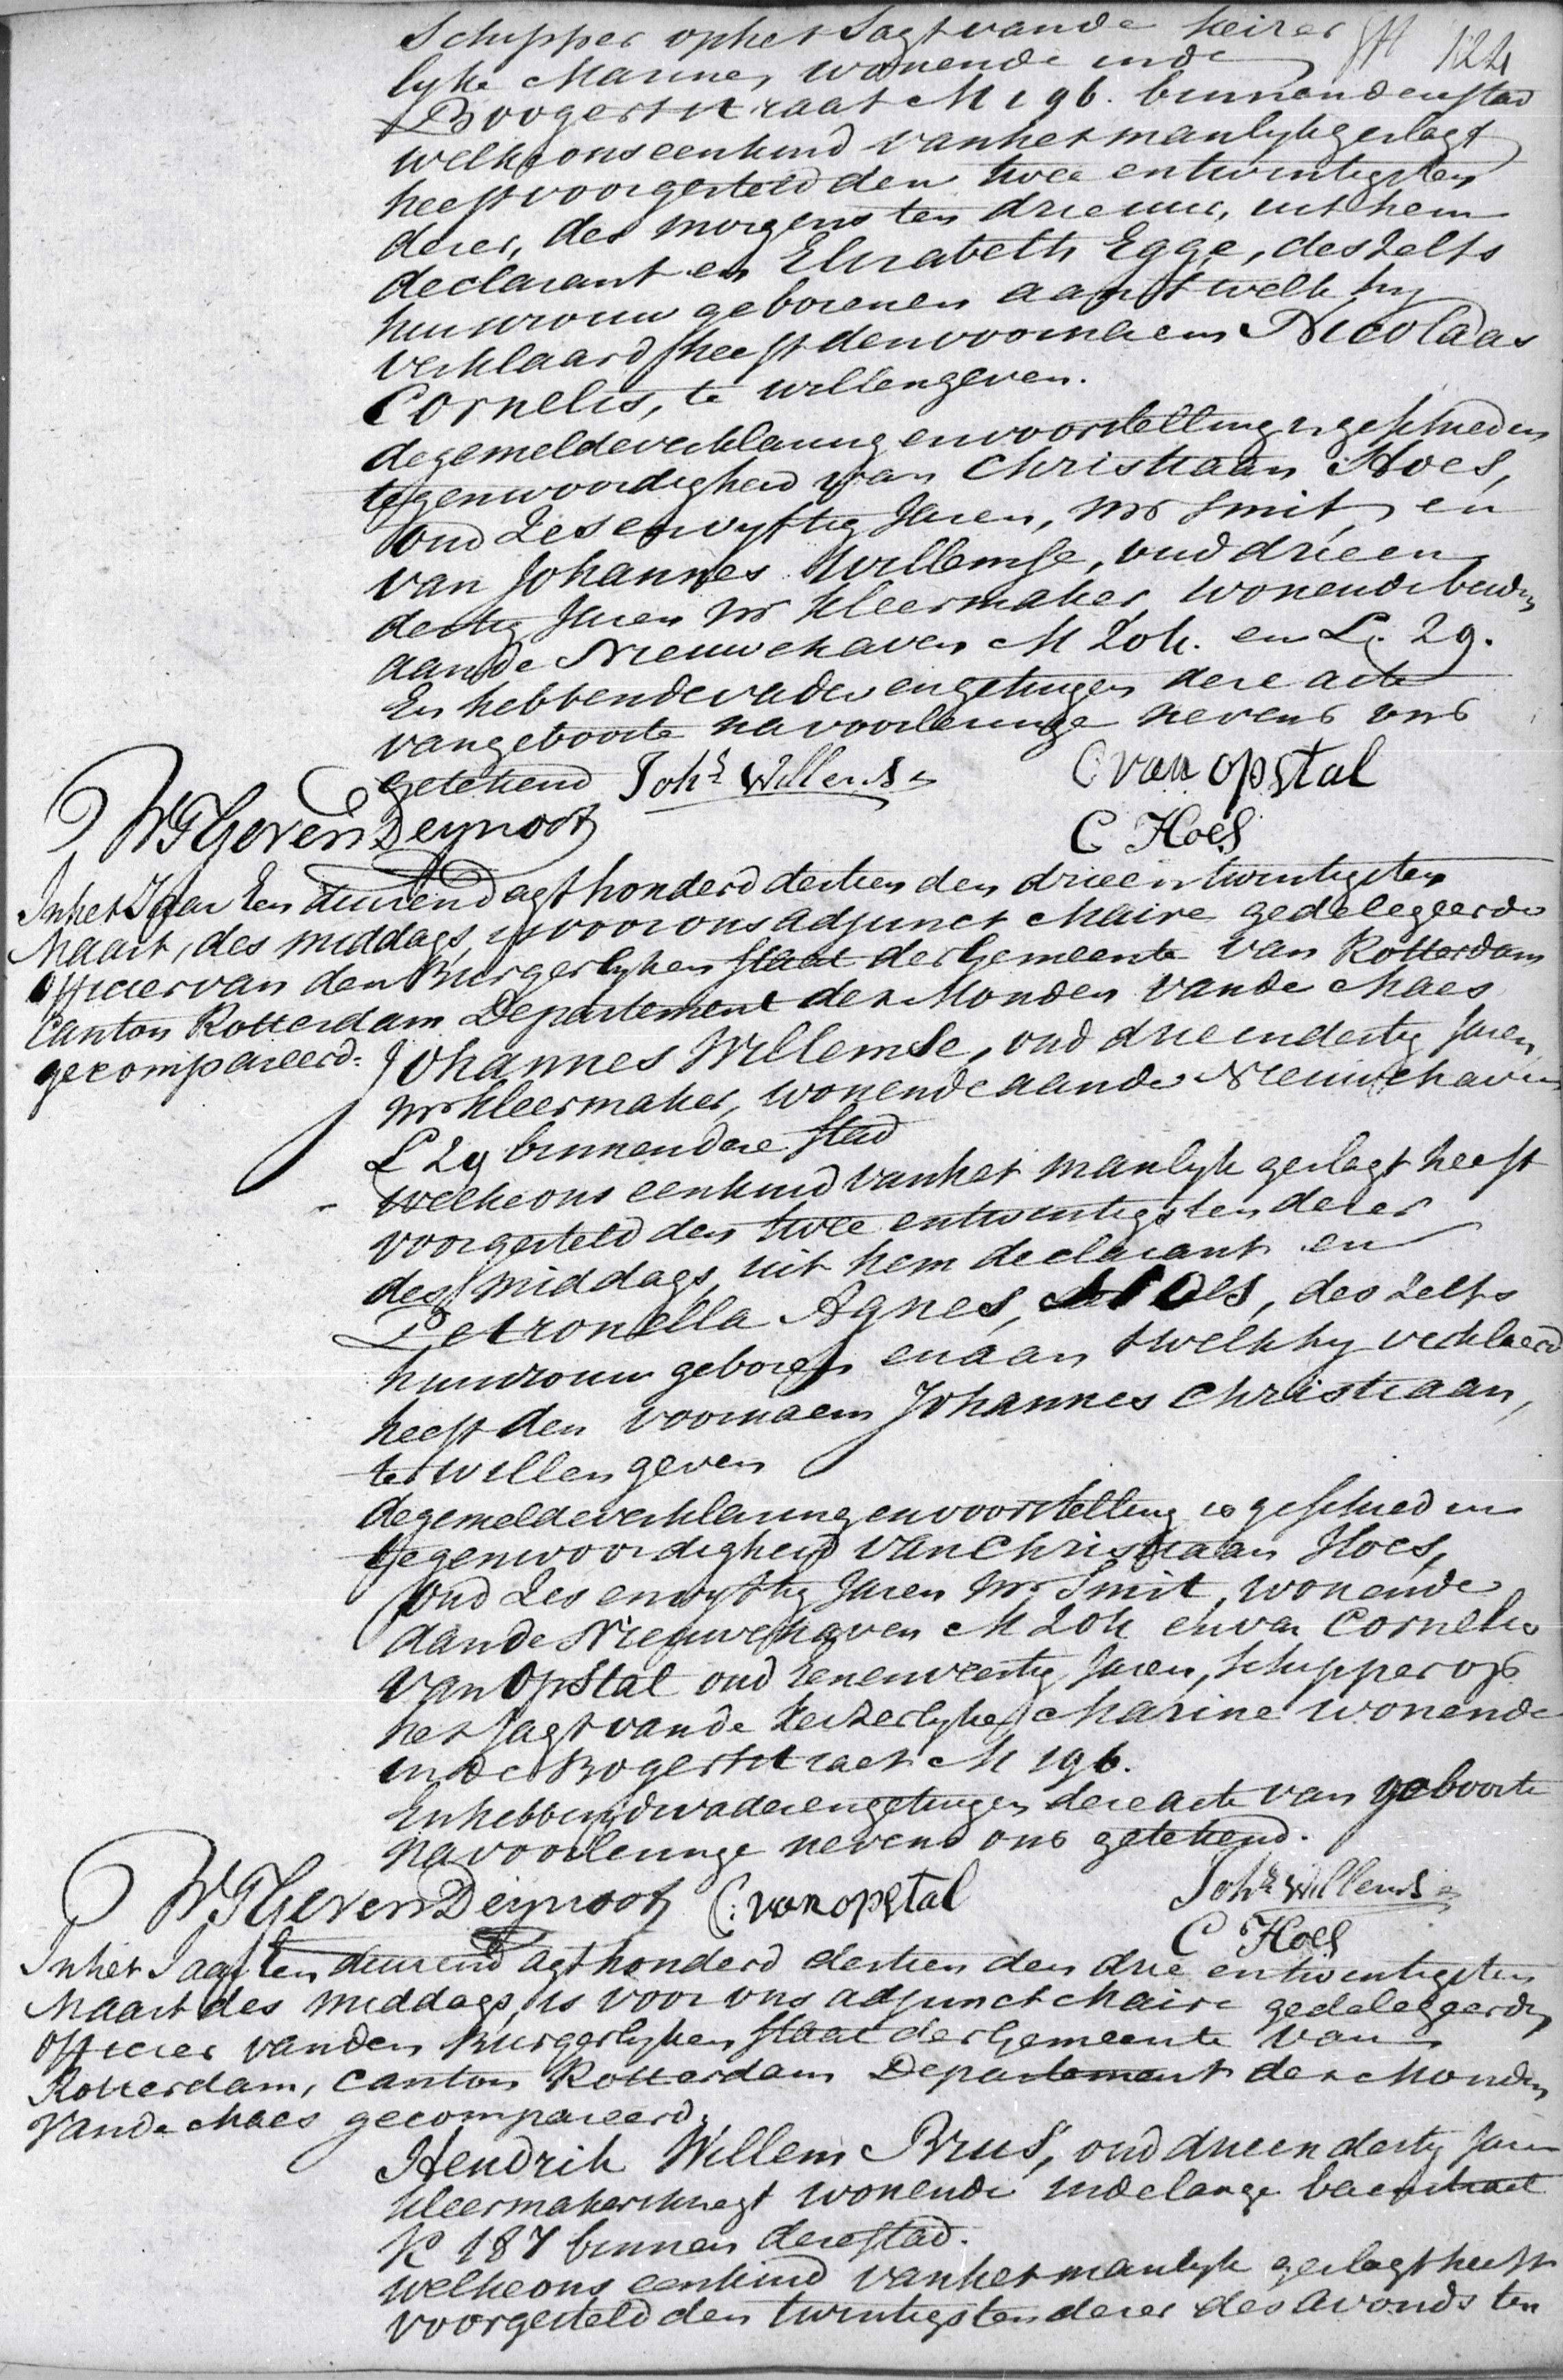 124
Schipper op het Jagt van de keizer
lyke Marine, wonende in de
Boogertstraat M 196. binnen deze stad
welke ons een kind van het manlyk geslagt
heeft voorgesteld den twee en twintigsten
dezer, des morgens ten drie uur, uit hem
declarant en Elisabeth Egge, deszelfs
huisvrouw geboren en aan 't welk hy
verklaard heeft den voornaem Nicolaas
Cornelis, te willen geven.
de gemelde verklaring en voorstelling is geschied in
tegenwoordigheid van Christiaan Hoes,
oud Zes en vyftig Jaren, Mr Smit, en
van Johannes Willemse, oud drie en
dertig Jaren Mr kleermaker, wonende beiden
aan de Nieuwehaven M 204. en L. 29.
En hebben de vader en getuigen deze acte
van geboorte na voorlezinge nevens ons
getekend Johs Willemse C van opstal
WF Geven Deynoot C Hoes
In het Jaar Een duizend agt honderd dertien den drie en twintigsten
Maart, des middags, is voor ons adjunct Maire gedelegeerde
officier van den Burgerlyken Staat der Gemeente van Rotterdam
Canton Rotterdam Departement der Monden van de Maes
gecompareerd: Johannes Willemse, oud drie en dertig Jaren,
Mr kleermaker, wonende aan de Nieuwehaven
L 29 binnen deze stad
welke ons een kind van het manlyk geslagt heeft
voorgesteld den twee en twintigsten dezer
des middags, uit hem declarant en
Petronella Agnes, Hoes, deszelfs
huisvrouw geboren en aan 't welk hy verklaard
heeft den voornaem Johannes Christiaan,
te willen geven
de gemelde verklaring en voorstelling is geschied in
tegenwoordigheid van Christiaan Hoes,
oud Zes en vyftig Jaren Mr Smit, wonende
aan de Nieuwehaven M 204 en van Cornelis
van Opstal oud Een en veertig Jaren, Schipper op
het Jagt van de keizerlyke Marine wonende
in de Bogertstraet M 196.
En hebben de vader en getuigen deze acte van geboorte
na voorlezinge nevens ons getekend.
WF Geven Deynoot C: van opstal Johs Willemse
C Hoes
In het Jaar Een duizend agt honderd dertien den drie en twintigsten
Maart des middags, is voor ons adjunct Maire gedelegeerde
officier van den Burgerlyken Staat der Gemeente van
Rotterdam, Canton Rotterdam Departement der Monden
van de Maes gecompareerd:
Hendrik Willem Brus, oud drie en dertig Jaren
kleermakersknegt wonende in de lange baenstraet
K 187 binnen deze stad.
welke ons een kind van het manlyk geslagt heeft
voorgesteld den twintigsten dezer des avonds ten